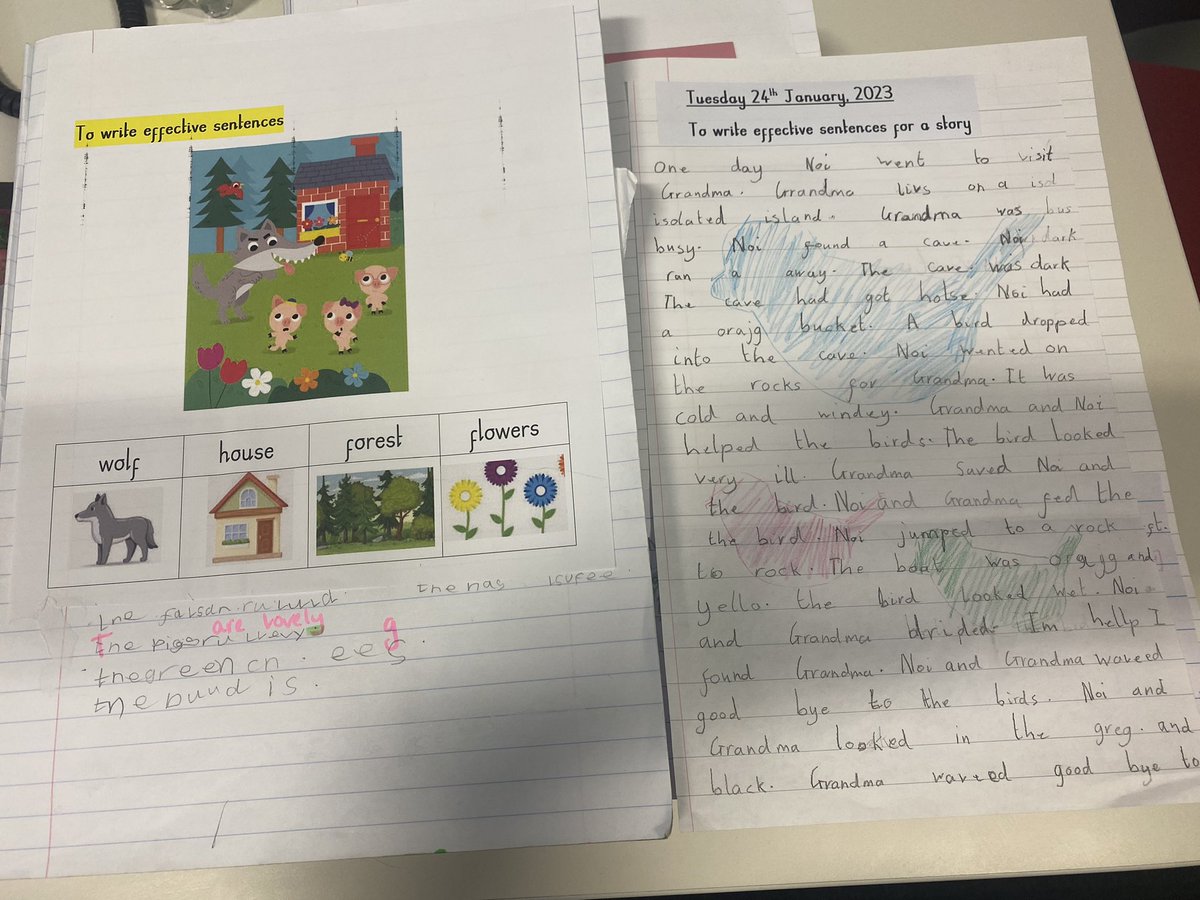 To write effective sentences
wolf
house
forest
flowers
the has
are lovely
The
g
thegreen cn. ees.
the is.
Tuesday 24th January, 2023
To write effective sentences for a story
One day Noi went to visit
Grandma. Grandma livs on a isol
isolated island. Grandma was bus
busy. Noi found a cave. Noi dark
ran a away. The cave. was dark
The cave had got holse. Noi had
a orajg bucket. A bird dropped
into the cave. Noi wented on
the rocks for Grandma. It was
cold and windey. Grandma and Noi
helped the birds. The bird looked
very ill. Grandma saved Noi and
the bird. Noi and Grandma fed the
the bird. Noi jumped to a rock st.
to rock. The boat was oragg and
yello. the bird looked wet. Noi
and Grandma drided. Im hellp I
found Grandma. Noi and Grandma waveed
good bye to the birds. Noi and
Grandma looked in the greg. and
black. Grandma waveed good bye to